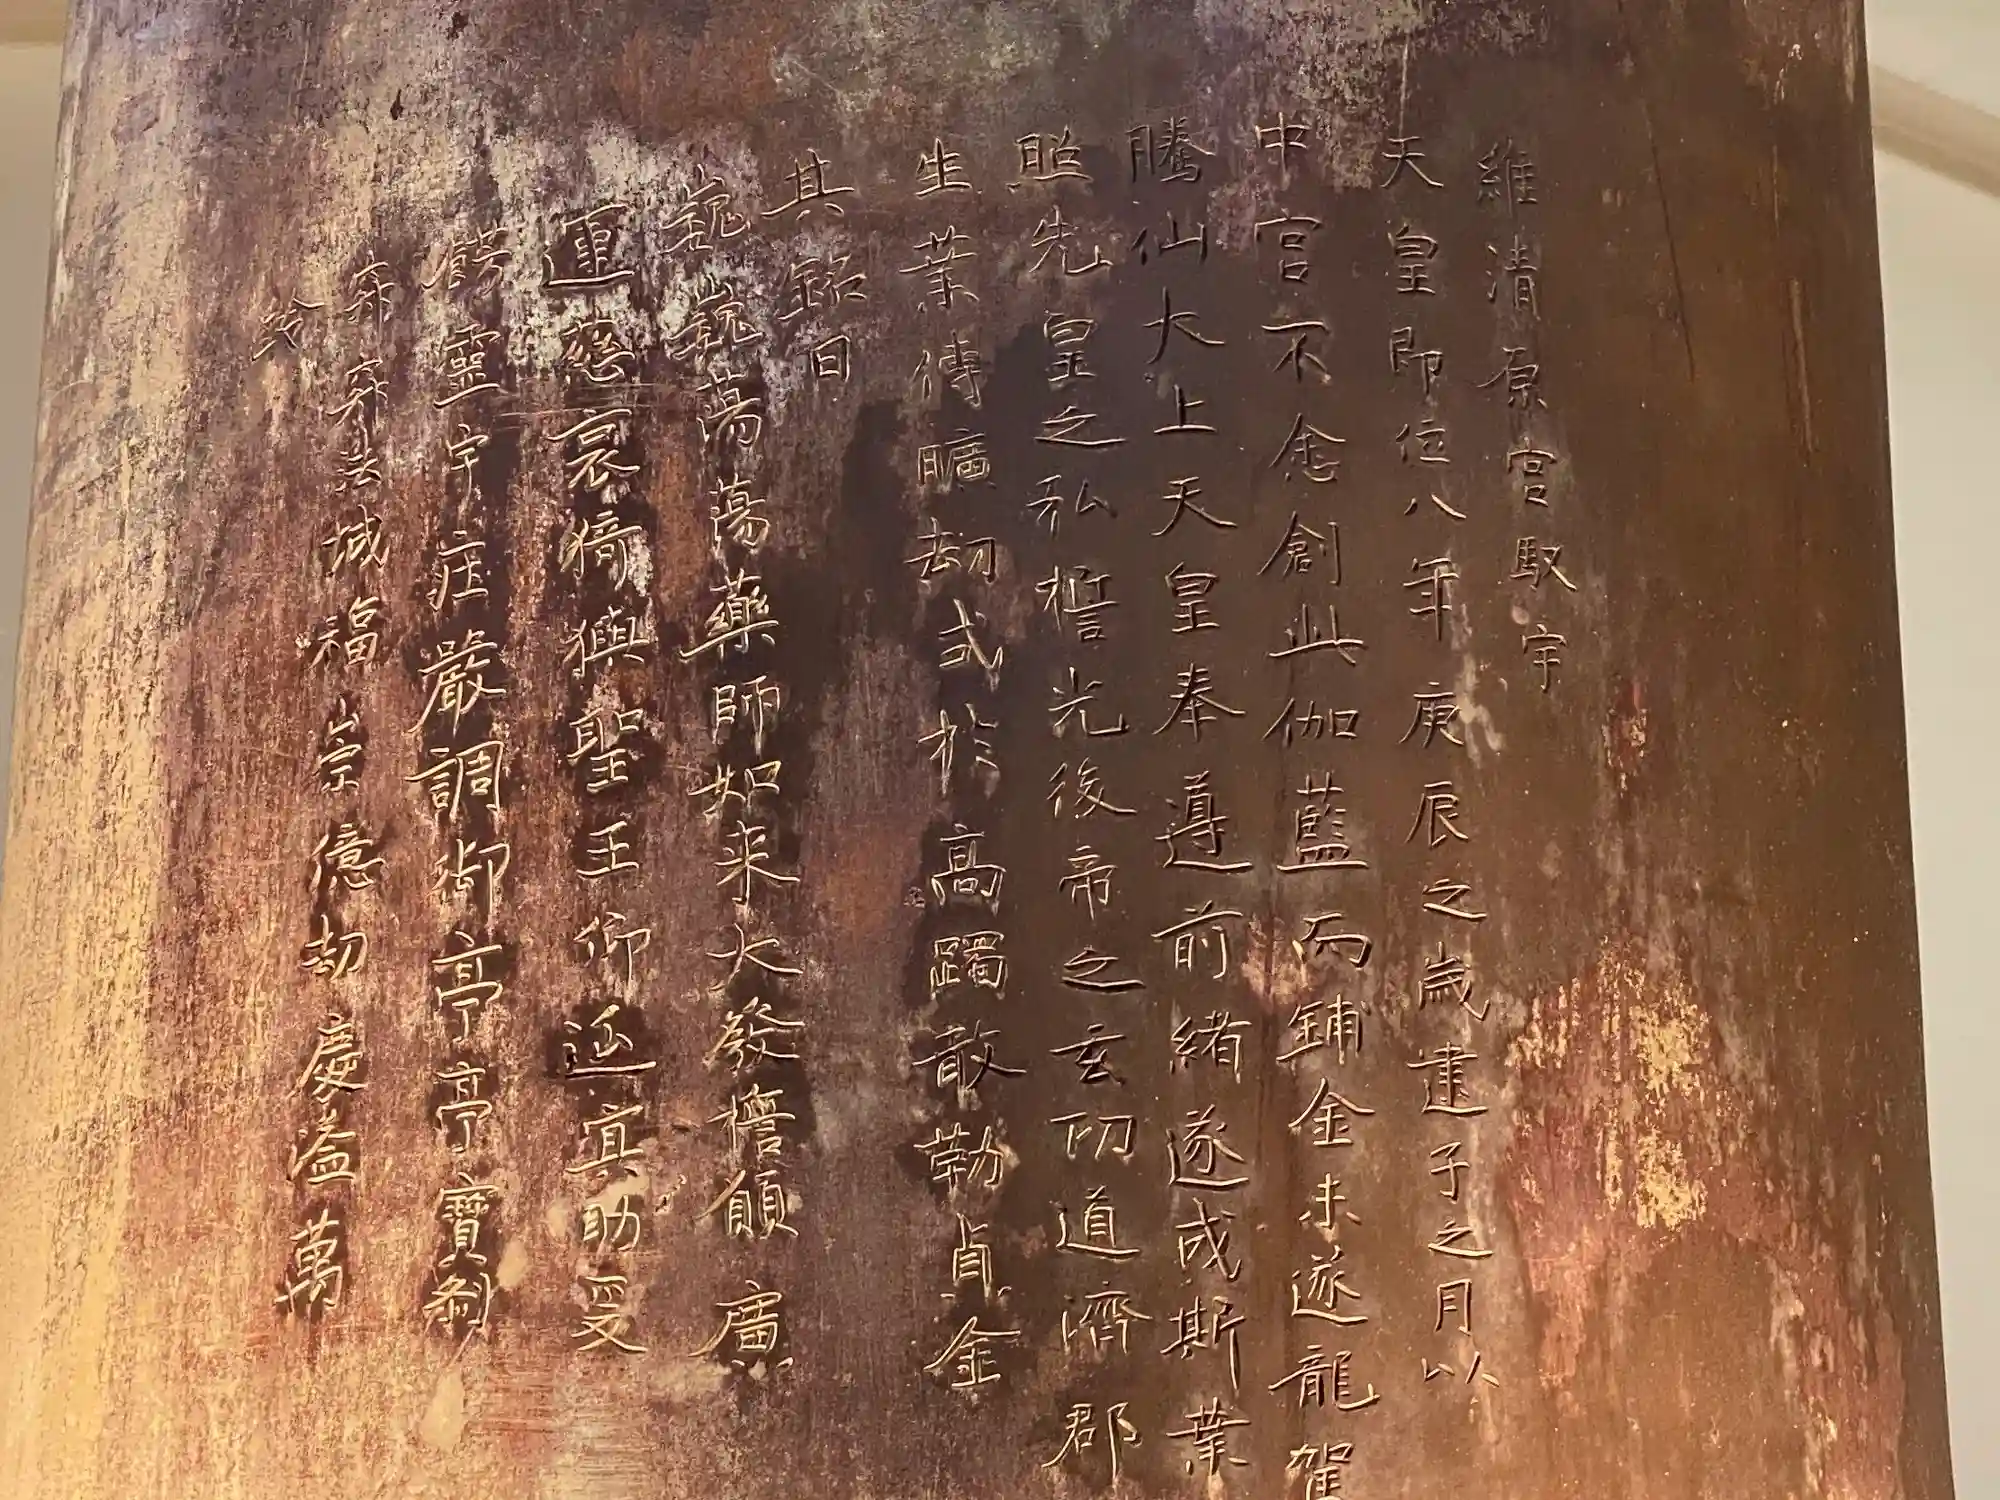 維清原宮馭宇
天皇即位八年庚辰之歳建子之月以
中宮不悆創此伽藍而鋪金未遂龍駕
騰仙大上天皇奉遵前緒遂成斯業
照先皇之弘誓光後帝之玄功道濟郡
生業傳曠劫式於高躅敢勒貞金
其銘曰
巍巍蕩蕩藥師如来大發誓願廣
運慈哀猗㺞聖王仰延冥助爰
餝靈宇庄嚴調御亭亭寶刹
寂寂法城福崇億劫慶溢萬
齡